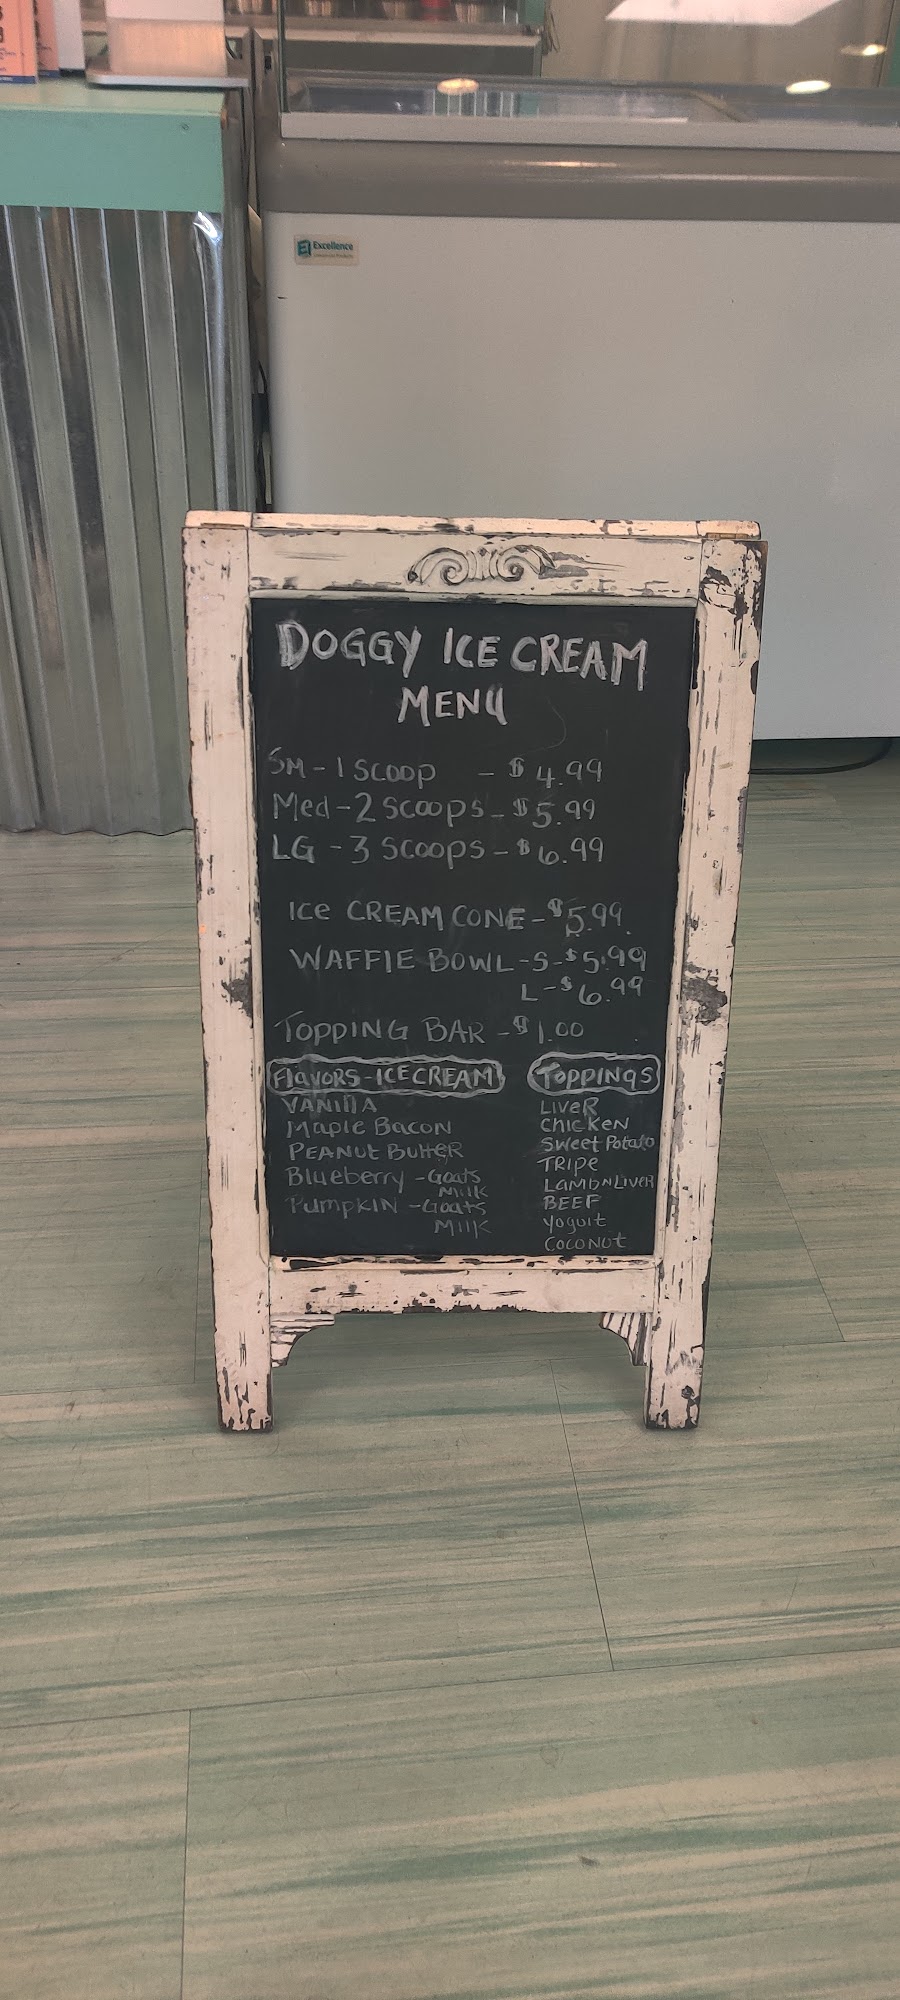 Excellence
DOGGY ICE CREAM
MENU
SM - 1 SCOOP - $4.99
Med - 2 SCOOPS - $5.99
LG - 3 SCOOPS - $6.99
ICE CREAM CONE - $5.99
WAFFIE BOWL - S - $5.99
L - $6.99
TOPPING BAR - $1.00
FlAVORS - ICE CREAM
VANIllA
Maple BACON
PEANUt ButtER
Blueberry - Goats
Milk
PumpkIN - Goats
MilK
TOPPINGS
LIVER
CHICKEN
Sweet Potato
TRIPE
LAMB N LIVER
BEEF
Yogurt
COCONUt